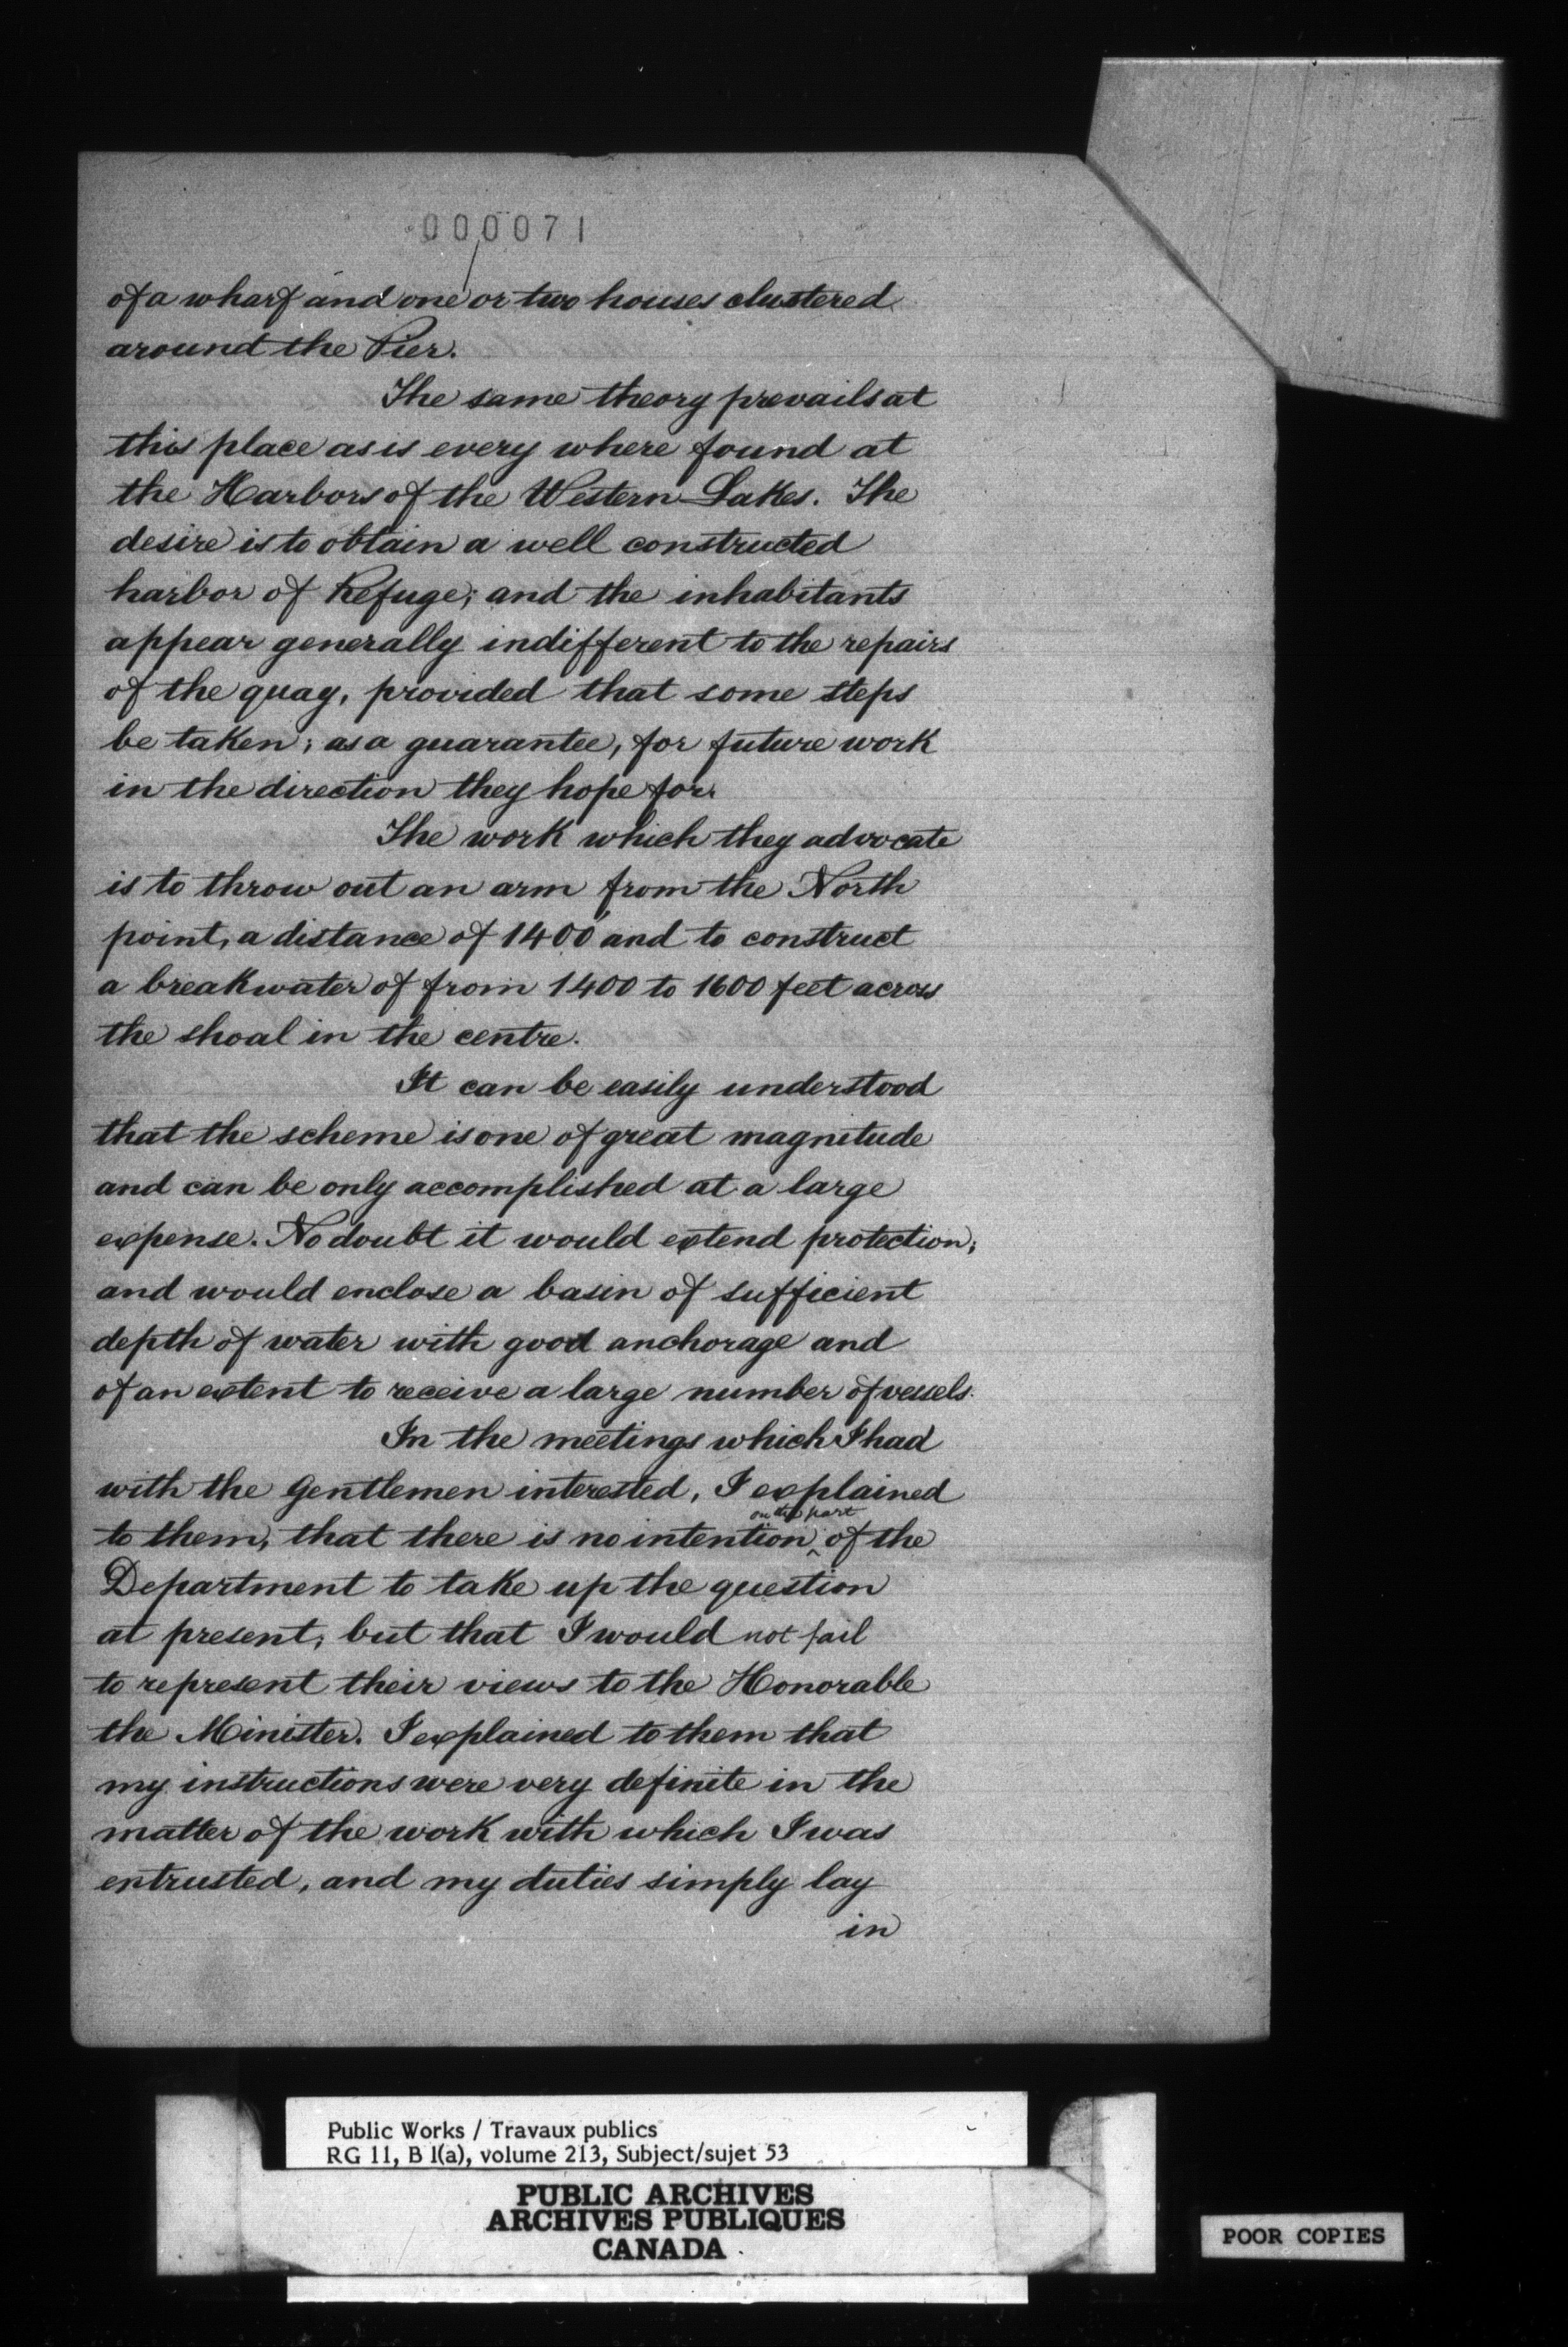 000071
of a wharf and one or two houses clustered
around the Pier.
The same theory prevails at
this place as is every where found at
the Harbors of the Western Lakes. The
desire is to obtain a well constructed
harbor of Refuge; and the inhabitants
appear generally indifferent to the repairs
of the quay, provided that some steps
be taken; as a guarantee, for future work
in the direction they hope for.
The work which they advocate
is to throw out an arm from the North
point, a distance of 1400' and to construct
a breakwater of from 1400 to 1600 feet across
the shoal in the centre.
It can be easily understood
that the scheme is one of great magnitude
and can be only accomplished at a large
expense. No doubt it would extend protection;
and would enclose a basin of sufficient
depth of water with good anchorage and
of an extent to receive a large number of vessels.
In the meetings which I had
with the Gentlemen interested, I explained
on the part
to them, that there is no intention ^ of the
Department to take up the question
at present, but that I would not fail
to represent their views to the Honorable
the Minister. I explained to them that
my instructions were very definite in the
matter of the work with which I was
entrusted, and my duties simply lay
in
Public Works / Travaux publics
RG 11, B 1(a), volume 213, Subject/sujet 53
PUBLIC ARCHIVES
ARCHIVES PUBLIQUES
CANADA
POOR COPIES